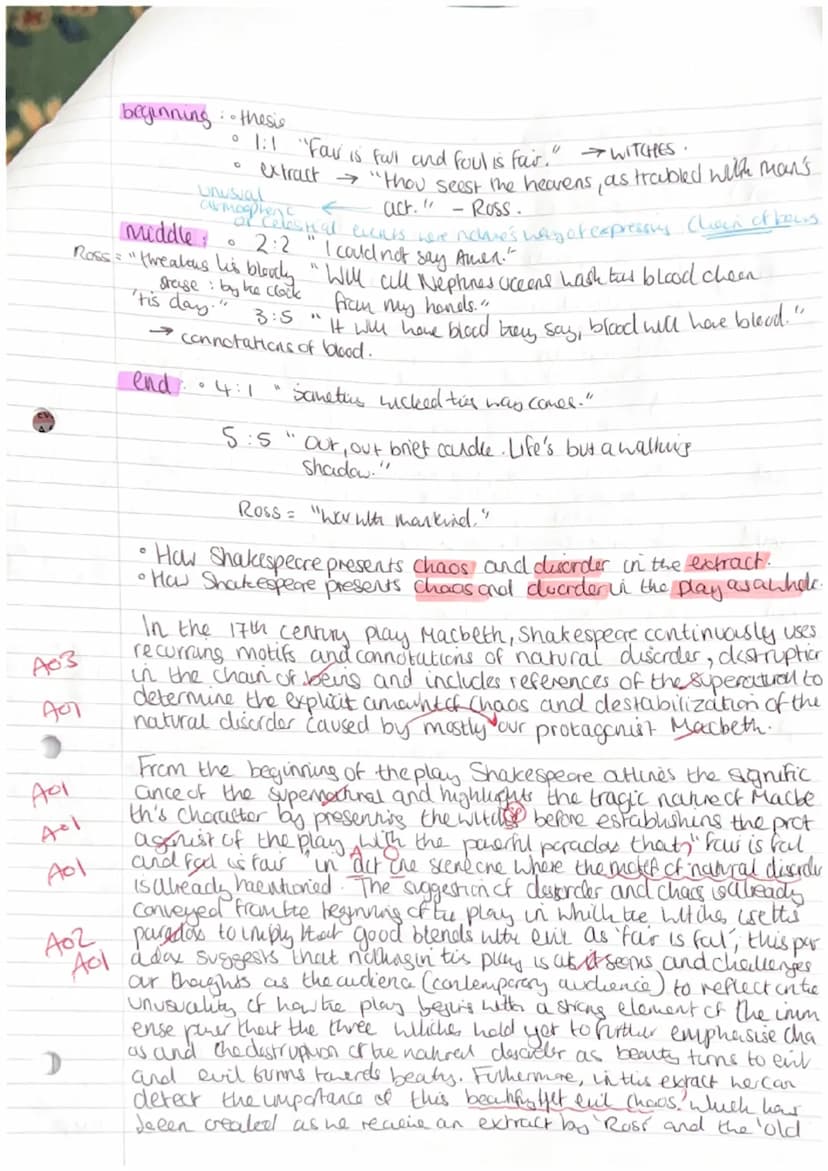 beginning : • thesis
• 1:1 "Fair is foul and foul is fair." → WITCHES.
• extract → "thou seest the heavens, as troubled with man's
act." – Ross.
unusual
atmospheric ←
or celestial events were nature's way of expressing Chain of being
middle : • 2:2 "I could not say Amen."
Ross = "threatens his bloody
stage : by the clock
'tis day."
"Will all Neptunes oceans wash this blood clean
from my hands."
3:5 "It will have blood they say, blood will have blood."
→ connotations of blood.
end : • 4:1 "Something wicked this way comes."
5:5 "Out, out brief candle. Life's but a walking
shadow."
Ross = "war with mankind."
• How Shakespeare presents chaos and disorder in the extract.
• How Shakespeare presents chaos and disorder in the play as a whole.
In the 17th century play Macbeth, Shakespeare continuously uses
AO3 recurring motifs and connotations of natural disorder, disruption
in the chain of being and includes references of the supernatural to
AO1 determine the explicit amount of chaos and destabilization of the
natural disorder caused by mostly our protagonist Macbeth.
From the beginning of the play Shakespeare outlines the signific
AO1 ance of the supernatural and highlights the tragic nature of Macbe
AO1 th's character by presenting the witches before establishing the prot
agonist of the play, with the powerful paradox that, "fair is foul
AO1 and foul is fair" in act one scene one where the motif of natural disorder
is already mentioned. The suggestion of disorder and chaos is already
conveyed from the beginning of the play in which the witches use this
AO2 paradox to imply that good blends with evil as 'fair is foul', this par
AO1 adox suggests that nothing in this play is as it seems and challenges
our thoughts as the audience (contemporary audience) to reflect on the
unusuality of how the play begins with a strong element of the imm
ense power that the three witches hold yet to further emphasise cha
os and the destruption of the natural disorder as beauty turns to evil
and evil turns towards beauty. Futhermore, in this extract we can
detect the importance of this beautiful yet evil chaos, which has
been created as we receive an extract by 'Ross' and the 'old